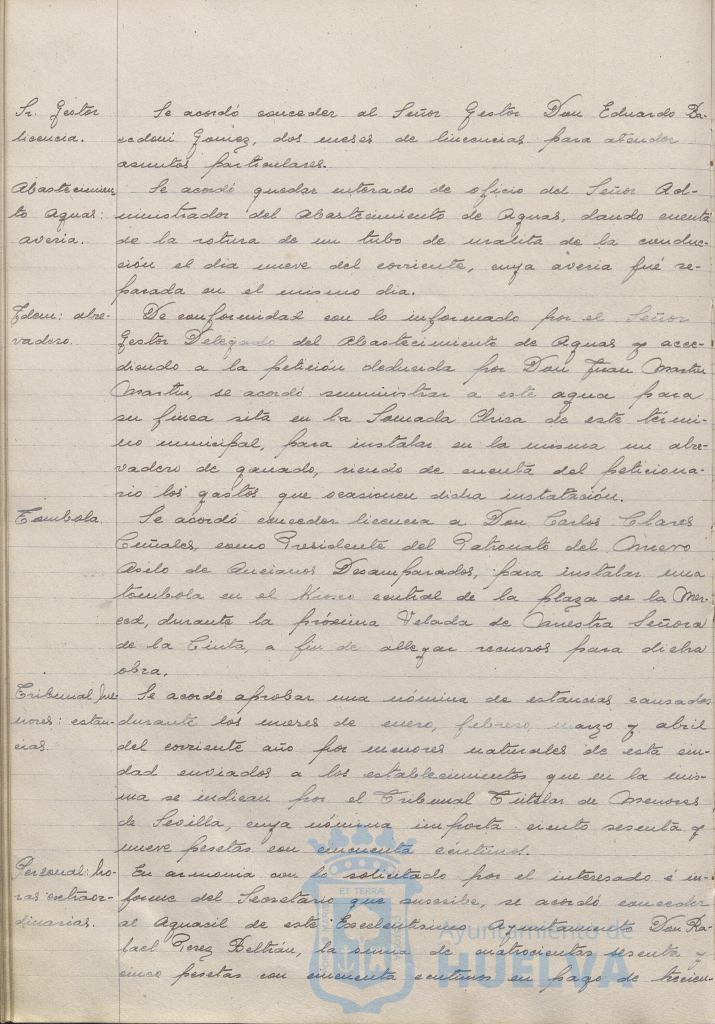 Sr. Gestor
licencia.
Se acordó conceder al Señor Gestor Don Eduardo Ba-
ccdoni Gomez, dos meses de lincencias para atender
asuntos particulares.
Abastecimien
to Aguas:
averia.
Se acordó quedar enterado de oficio del Señor Ad-
ministrador del Abastecimiento de Aguas, dando cuenta
de la rotura de un tubo de uralita de la conduc-
ción el dia nueve del corriente, cuya averia fué re-
parada en el mismo dia.
Idem: abre-
vadero.
De conformidad con lo informado por el Señor
Gestor Delegado del Abastecimiento de Aguas y acce-
diendo a la petición deducida por Don Juan Martin
Martin, se acordó suministrar a este agua para
su finca sita en la Jomada Chica de este térmi-
no municipal, para instalar en la misma un abre-
vadero de ganado, siendo de cuenta del peticiona-
rio los gastos que ocasionen dicha instalación.
Tombola.
Se acordó conceder licencia a Don Carlos Clares
Cuñales, como Presidente del Patronato del Nuevo
Asilo de Ancianos Desamparados, para instalar una
tombola en el Kiosco central de la plaza de la Mer-
ced, durante la próxima Velada de Nuestra Señora
de la Cinta, a fin de allegar recursos para dicha
obra.
Tribunal Me-
nores: estan-
cias.
Se acordó aprobar una nómina de estancias causadas
durante los meses de enero, febrero, marzo y abril
del corriente año por menores naturales de esta ciu-
dad enviados a los establecimientos que en la mis-
ma se indican por el Tribunal Tutelar de Menores
de Sevilla, cuya nómina importa ciento sesenta y
nueve pesetas con cincuenta céntimos.
Personal: ho-
ras extraor-
dinarias.
En armonia con lo solicitado por el interesado é in-
forme del Secretario que suscribe, se acordó conceder
al Aguacil de este Excelentisimo Ayuntamiento Don Ra-
fael Perez Beltrán, la suma de cuatrocientas sesenta y
cinco pesetas con cincuenta centimos en pago de trecien-
ET TERRÆ
Ayuntamiento de
HUELVA